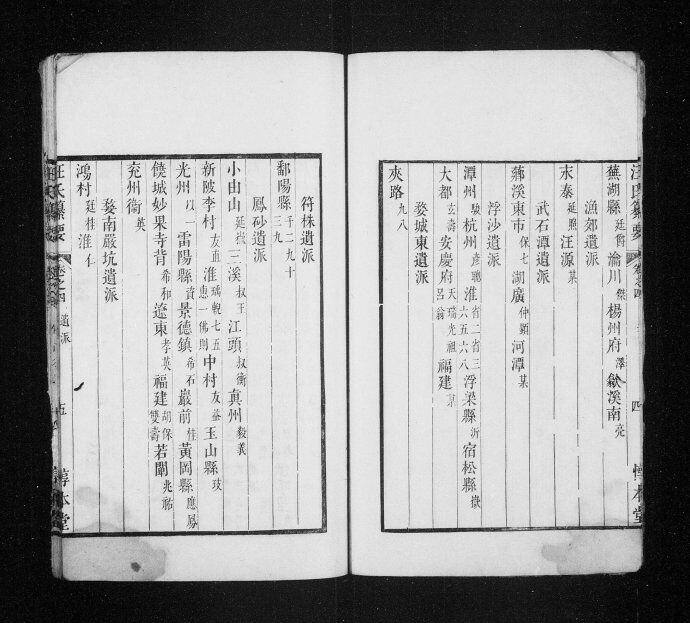 汪氏纂要
卷之四
四
惇本堂
蕪湖縣 廷爵 渝川 傑 楊州府 澤 歙溪南 亮
漁郊遺派
永泰 廷熊 汪源 某
武石潭遺派
薌溪東市 保七 湖廣 仲顯 河潭 某
浮沙遺派
潭州 駿 杭州 彥聰 淮 省二省三六五六八 浮梁縣 沂 宿松縣 嶽
大都 玄壽 安慶府 天瑞光祖呂翁 福建 某
婺城東遺派
夾路 九八
符株遺派
鄱陽縣 千二九十三九
鳳砂遺派
小由山 廷徽 三溪 叔王 江頭 叔衡 真州 毅義
新陂李村 友直 淮 瑀輗七五惠一佛則 中村 友益 玉山縣 玹
光州 以一 雷陽縣 賁 景德鎮 希石 巖前 桂 黃岡縣 應鳳
饒城妙果寺背 希和 遼東 孝英 福建 胡保雙壽 若閫 兆祐
兖州衞 英
婺南嚴坑遺派
鴻村 廷桂 淮 仁
汪氏纂要
卷之四
遺派
五
惇本堂